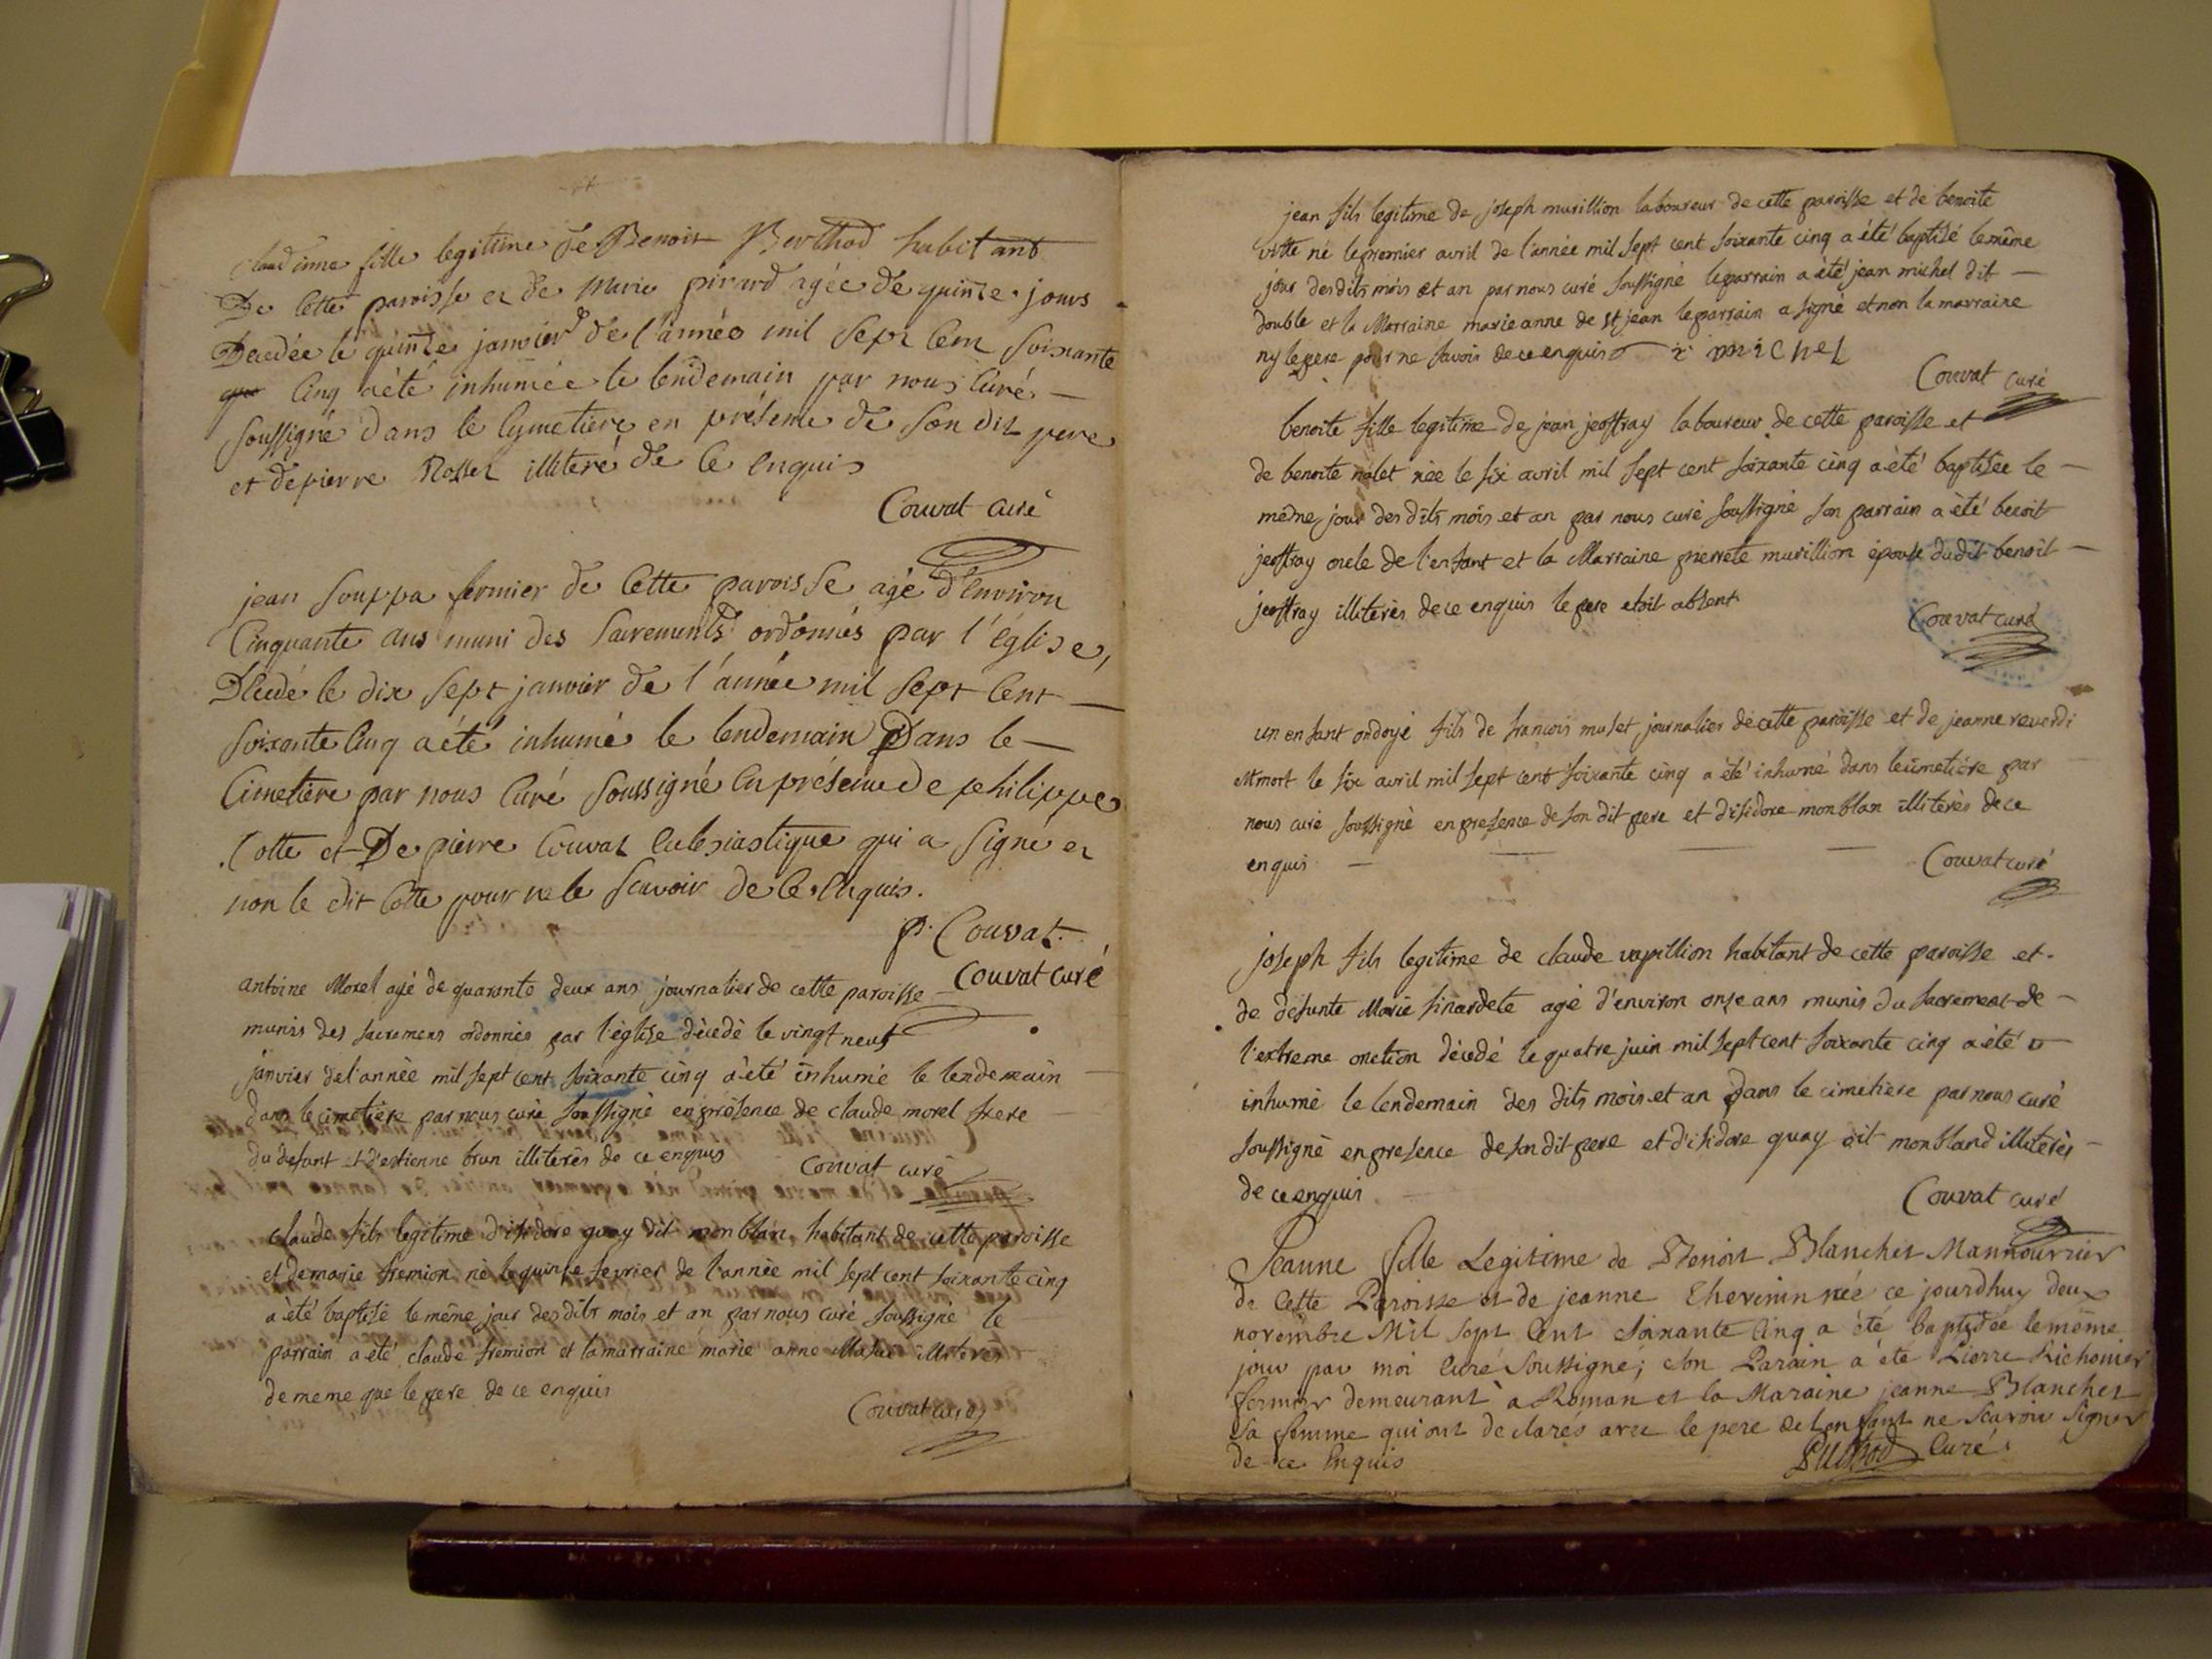 claudinne fille legitime de Benoit Berthod habitant
De cette paroisse et de Marie pirard agée de quinze jours
Decedée le quinze janvier de l'année mil sept cent soixante
cinq a été inhumée le lendemain par nous curé —
soussigné dans le cymetiere en présence de son dit pere
et de pierre Rosset illiteré de ce enquis
Couvat curé
jean souppa fermier de cette paroisse agé d'environ
Cinquante ans muni des sacrements ordonnés par l'église,
Décedé le dix sept janvier de l'année mil sept cent —
soixante cinq a été inhumé le lendemain Dans le —
Cimetiere par nous curé soussigné en présence de philippe
Cotte et De pierre Couvat eclesiastique qui a signé et
non le dit Cotte pour ne le scavoir de ce enquis.
P. Couvat.
Couvat curé
antoine Morel agé de quarente deux ans journalier de cette paroisse
munis des sacremens ordonnés par l'église décedé le vingt neuf
janvier de l'année mil sept cent soixante cinq a été inhumé le lendemain
dans le cimetiere par nous curé soussigné en présence de claude morel frere
du defunt et d'estienne brun illiterés de ce enquis
Couvat curé
claude fils legitime d'isidore quay dit monblan habitant de cette paroisse
et de marie fremion né le quinze fevrier de l'année mil sept cent soixante cinq
a été baptisé le même jour des dits mois et an par nous curé soussigné le
parrain a été claude fremion et la marraine marie anne illiterés
de meme que le pere de ce enquis
Couvat curé
jean fils legitime de joseph murillion laboureur de cette paroisse et de benoite
vitte né le premier avril de l'année mil sept cent soixante cinq a été baptisé le même
jour des dits mois et an par nous curé soussigné le parrain a été jean michel dit —
double et la Marraine marie anne de st jean le parrain a signé et non la marraine
ny le pere pour ne savoir de ce enquis i michel
Couvat curé
benoite fille legitime de jean jeoffray laboureur de cette paroisse et
de benoite nalet née le six avril mil sept cent soixante cinq a été baptisée le —
même jour des dits mois et an par nous curé soussigné son parrain a été benoit
jeoffray oncle de l'enfant et la Marraine pierrete murillion épouse du dit benoit —
jeoffray illiterés de ce enquis le pere etoit absent
Couvat curé
un enfant ondoyé fils de francois mulet journalier de cette paroisse et de jeanne reverdi
et mort le six avril mil sept cent soixante cinq a été inhumé dans le cimetiére par
nous curé soussigné en presence de son dit pere et d'isidore monblan illiterés de ce
enquis —
Couvat curé
joseph fils legitime de claude vapillion habitant de cette paroisse et
de defunte Marie finardete agé d'environ onze ans munis du sacrement de —
l'extreme onction décedé le quatre juin mil sept cent soixante cinq a été
inhumé le lendemain des dits mois et an dans le cimetiere par nous curé
soussigné en presence de son dit pere et d'isidore quay dit monbland illiterés —
de ce enquis
Couvat curé
Jeanne fille Legitime de Benoit Blanchet Mannouvrier
de cette Paroisse et de jeanne Thevenin née ce jourdhuy deux
novembre Mil sept Cent soixante Cinq a été baptisée le même
jour par moi Curé soussigné; son Parain a été Pierre Richonier
fermier demeurant à Roman et la Maraine jeanne Blanchet
sa femme qui ont declarés avec le pere de l'enfant ne scavoir signer
de ce Enquis
Curé